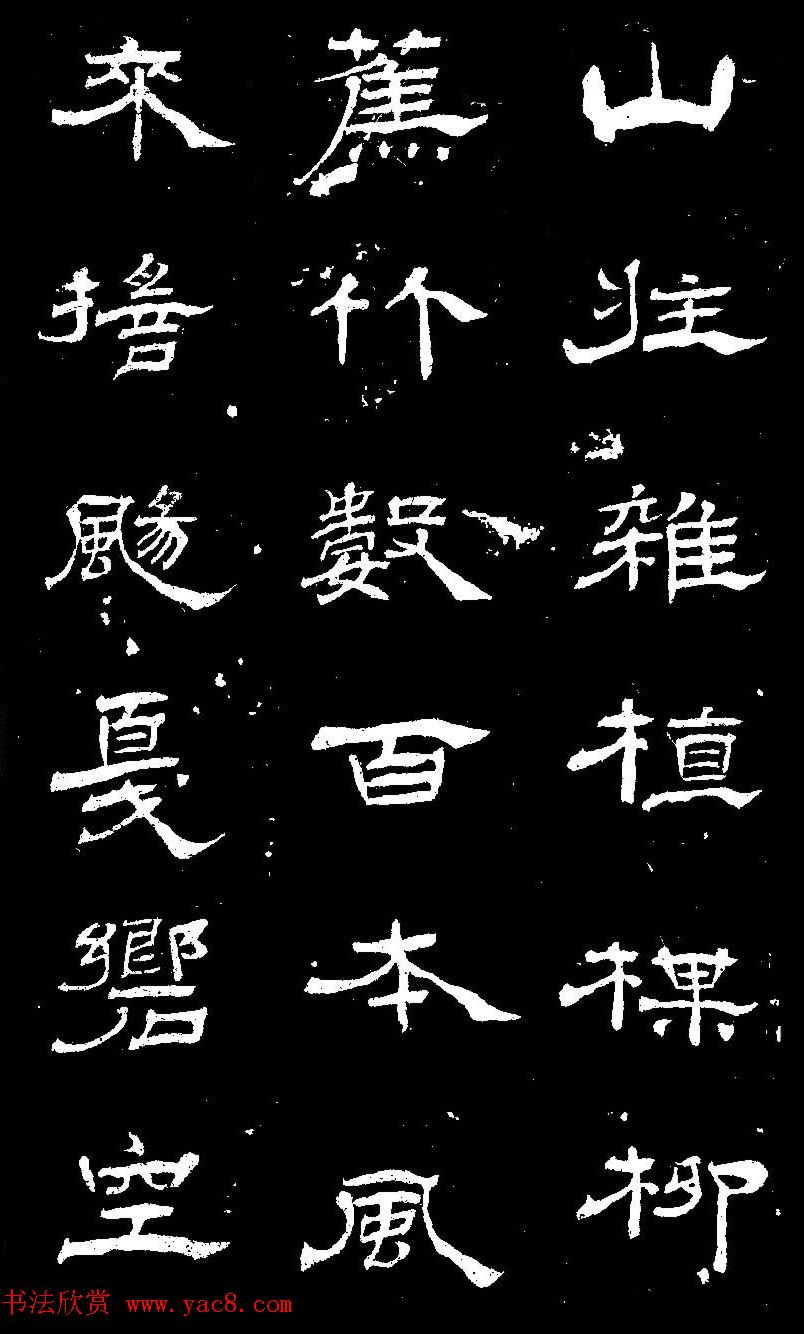 山莊雜植棵柳
蕉竹數百本風
來搖颺戛響空
书法欣赏 www.yac8.com